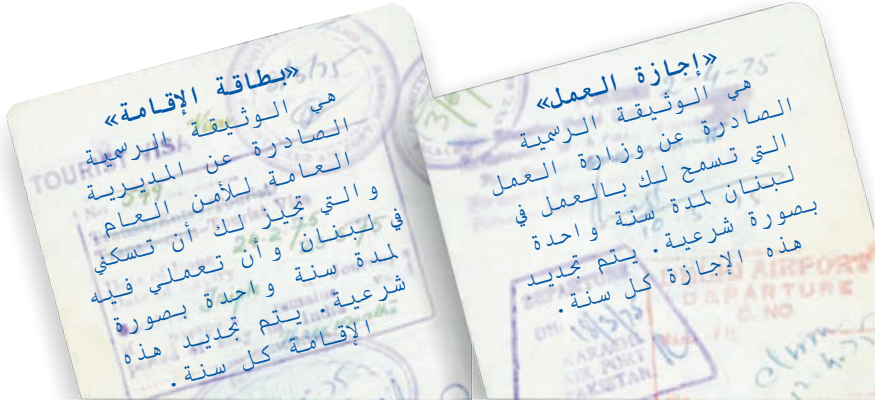 «إجازة العمل»
هي الوثيقة الرسمية
الصادرة عن وزارة العمل
التي تسمح لك بالعمل في
لبنان لمدة سنة واحدة
بصورة شرعية. يتم تجديد
هذه الإجازة كل سنة.
«بطاقة الإقامة»
هي الوثيقة الرسمية
الصادرة عن المديرية
العامة للأمن العام
والتي تجيز لك أن تسكني
في لبنان وأن تعملي فيه
لمدة سنة واحدة بصورة
شرعية. يتم تجديد هذه
الإقامة كل سنة.
TOURIST VISA
4-75
AIRPORT
DEPARTURE
DEPARTURE
KARACHI
AIR PORT
PAKISTAN